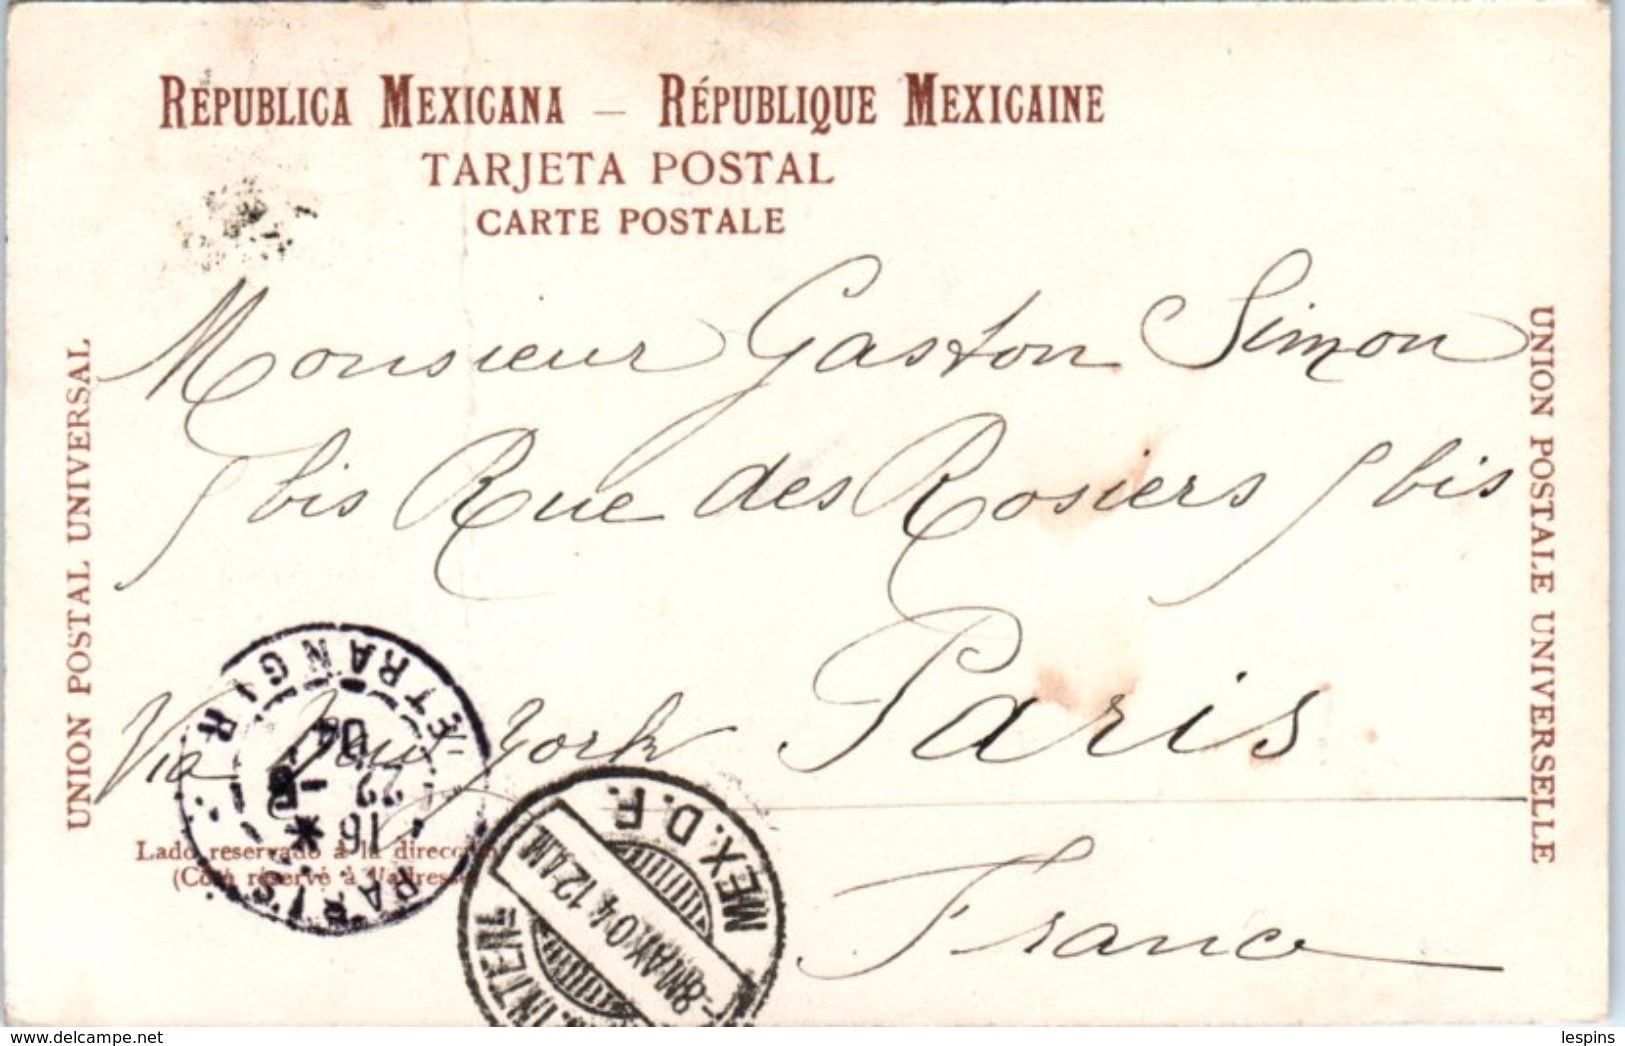 REPUBLICA MEXICANA — RÉPUBLIQUE MEXICAINE
TARJETA POSTAL
CARTE POSTALE
UNION POSTAL UNIVERSAL
UNION POSTALE UNIVERSELLE
Monsieur Gaston Simon
5 bis Rue des Rosiers 5 bis
Paris
Via New York
France
Lado reservado á la direccion
(Coté réservé à l'adresse
PARIS ETRANGER
16 * 22 - 5 04
MEX. D. F.
-8 MAY. 04 12 4 M.
INTERN
delcampe.net
lespins